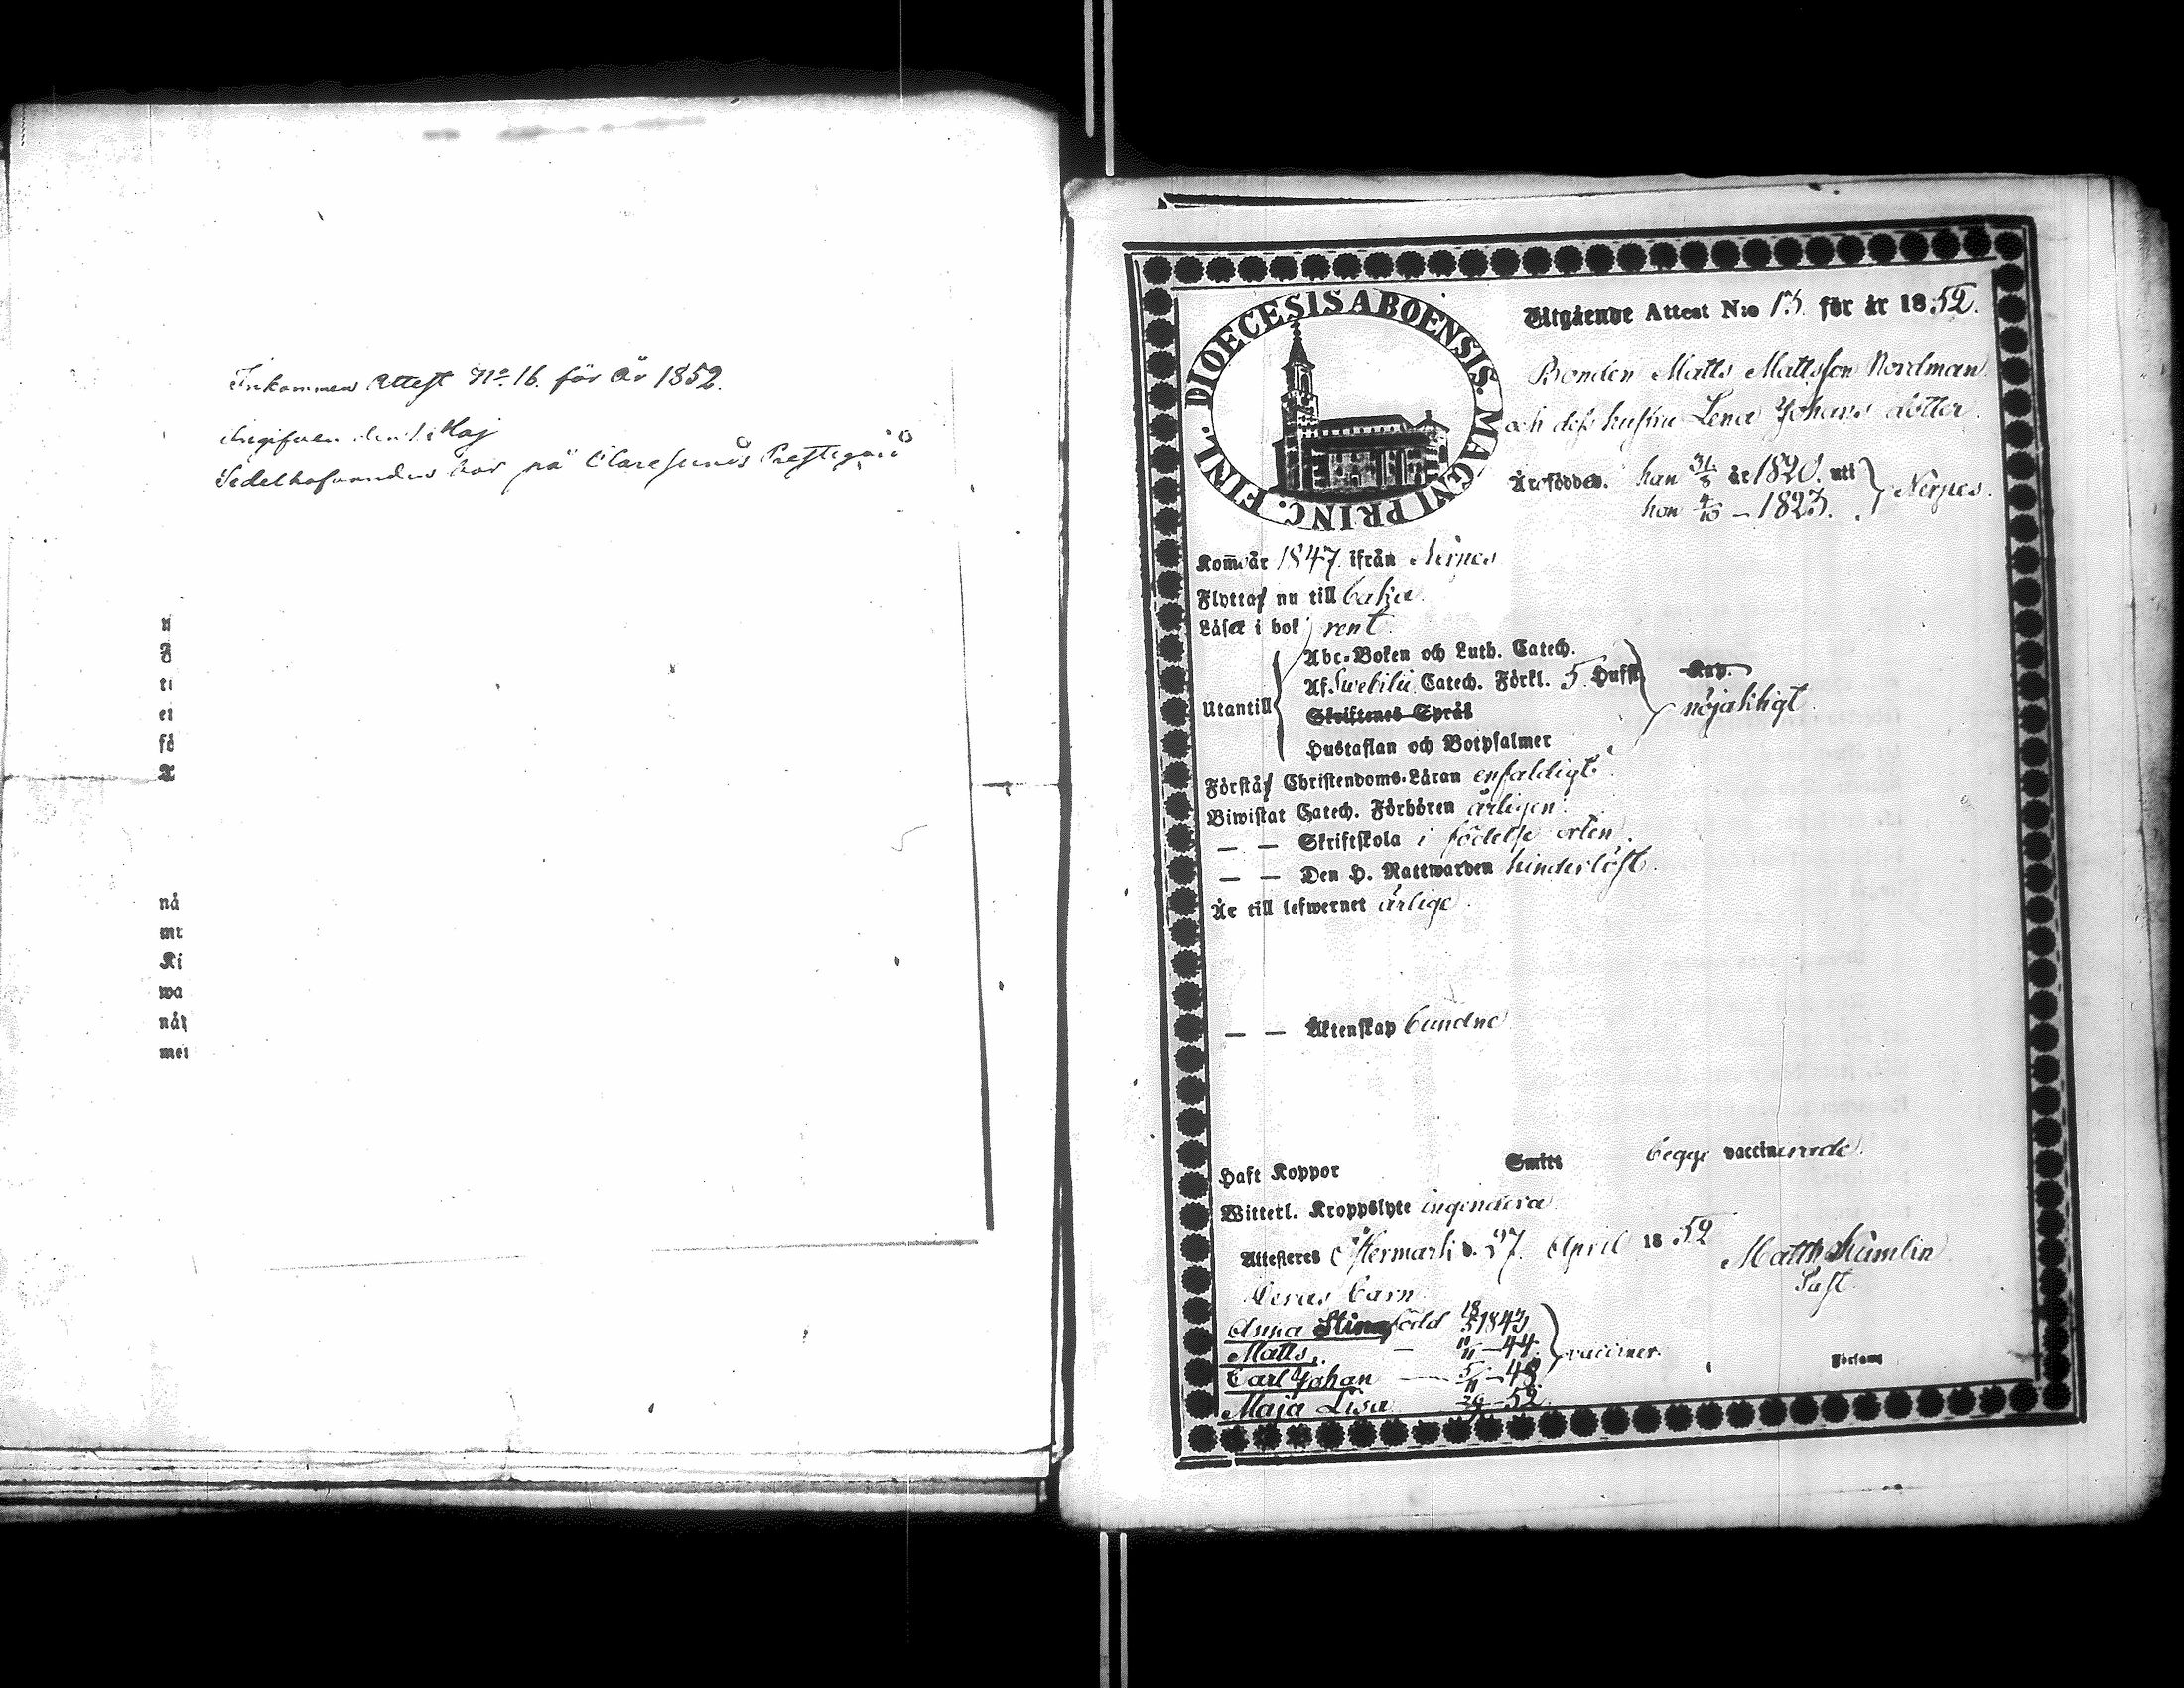 Inkommen Attest No 16. för År 1852.
den 1 Maj
bor på Prestegård
u
F
ti
ei
fö
T
nå
mt
Ki
wa
nåt
mei
DIOECESIS ABOENSIS. MAGNI PRINC. FINL.
Utgående Attest N:o 13. för år 1852.
Bonden Matts Mattsson Nordman
och dess hustru Lena Johans dotter.
Äro födde. han 31/3 år 1820. uti
hon 4/10 — 1823. Nerpes.
Kom̄o år 1847. ifrån Nerpes
Flyttas nu till baka.
Läsa i bok rent.
Abc-Boken och Luth. Catech.
Af Swebilii Catech. Förkl. 5 Hufst. Kap.
Utantill
Skriftenes Språk
nöjaktigt.
Hustaflan och Botpsalmer
Förstå Christendoms-Läran enfaldigt
Biwistat Catech. Förhören årligen.
— — Skriftskola i födelse orten.
— — Den H. Nattwarden hinderlöst.
Är till lefwernet ärlige.
— — Äktenskap bundne
Haft Koppor Smitt begge vaccinerade.
Witterl. Kroppslyte ingendera
Attesteras Östermark d. 27. April 1852
Matth
Past.
Deras barn
Anna Stina född 18/5 1843
Matts, — 11/11 — 44. vacciner.
Carl Johan — 5/11 — 48.
Maja Lisa — 52.
Församl